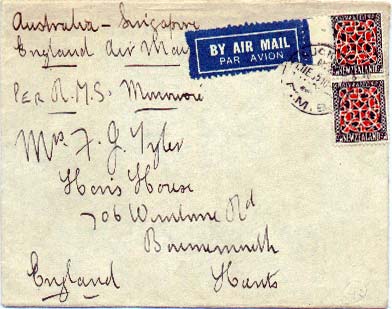 Australia - Singapore
England Air Mail
BY AIR MAIL
PAR AVION
PER R.M.S.
NEW ZEALAND
NEW ZEALAND
Mrs F. G. Tyler
House
706 Wimborne Rd
Bournemouth
England Hants